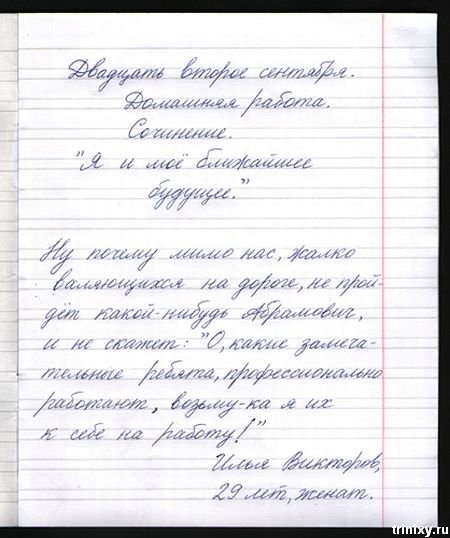 Двадцать второе сентября.
Домашняя работа.
Сочинение.
"Я и моё ближайшее
будущее."
Ну почему мимо нас, жалко
валяющихся на дороге, не прой-
дёт какой-нибудь Абрамович,
и не скажет: "О, какие замеча-
тельные ребята, профессионально
работают, возьму-ка я их
к себе на работу!"
Илья Викторов,
29 лет, женат.
trinixy.ru